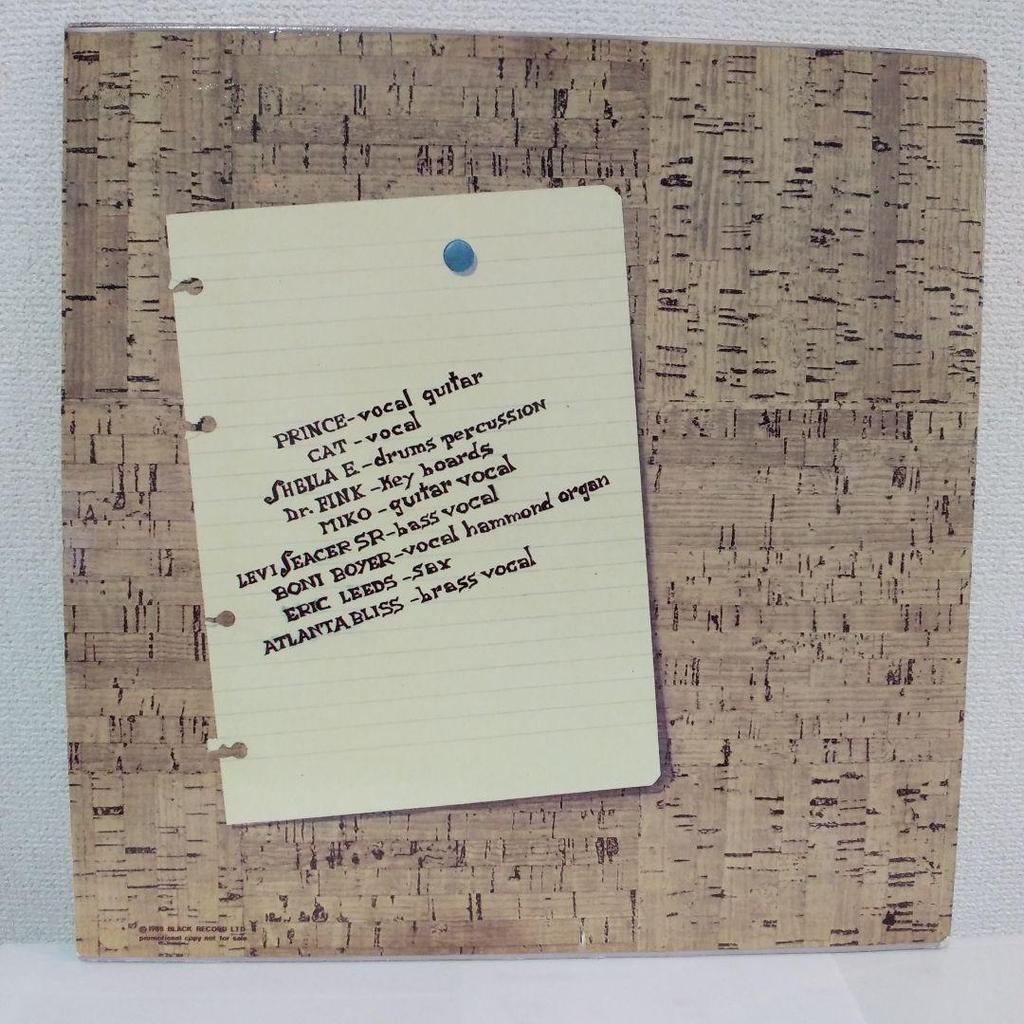 PRINCE-vocal guitar
CAT-vocal
SHEILA E.-drums percussion
Dr. FINK-Key boards
MIKO-guitar vocal
LEVI SEACER SR-bass vocal
BONI BOYER-vocal hammond organ
ERIC LEEDS-sax
ATLANTA BLISS-brass vocal
©1988 BLACK RECORD LTD
promotional copy not for sale